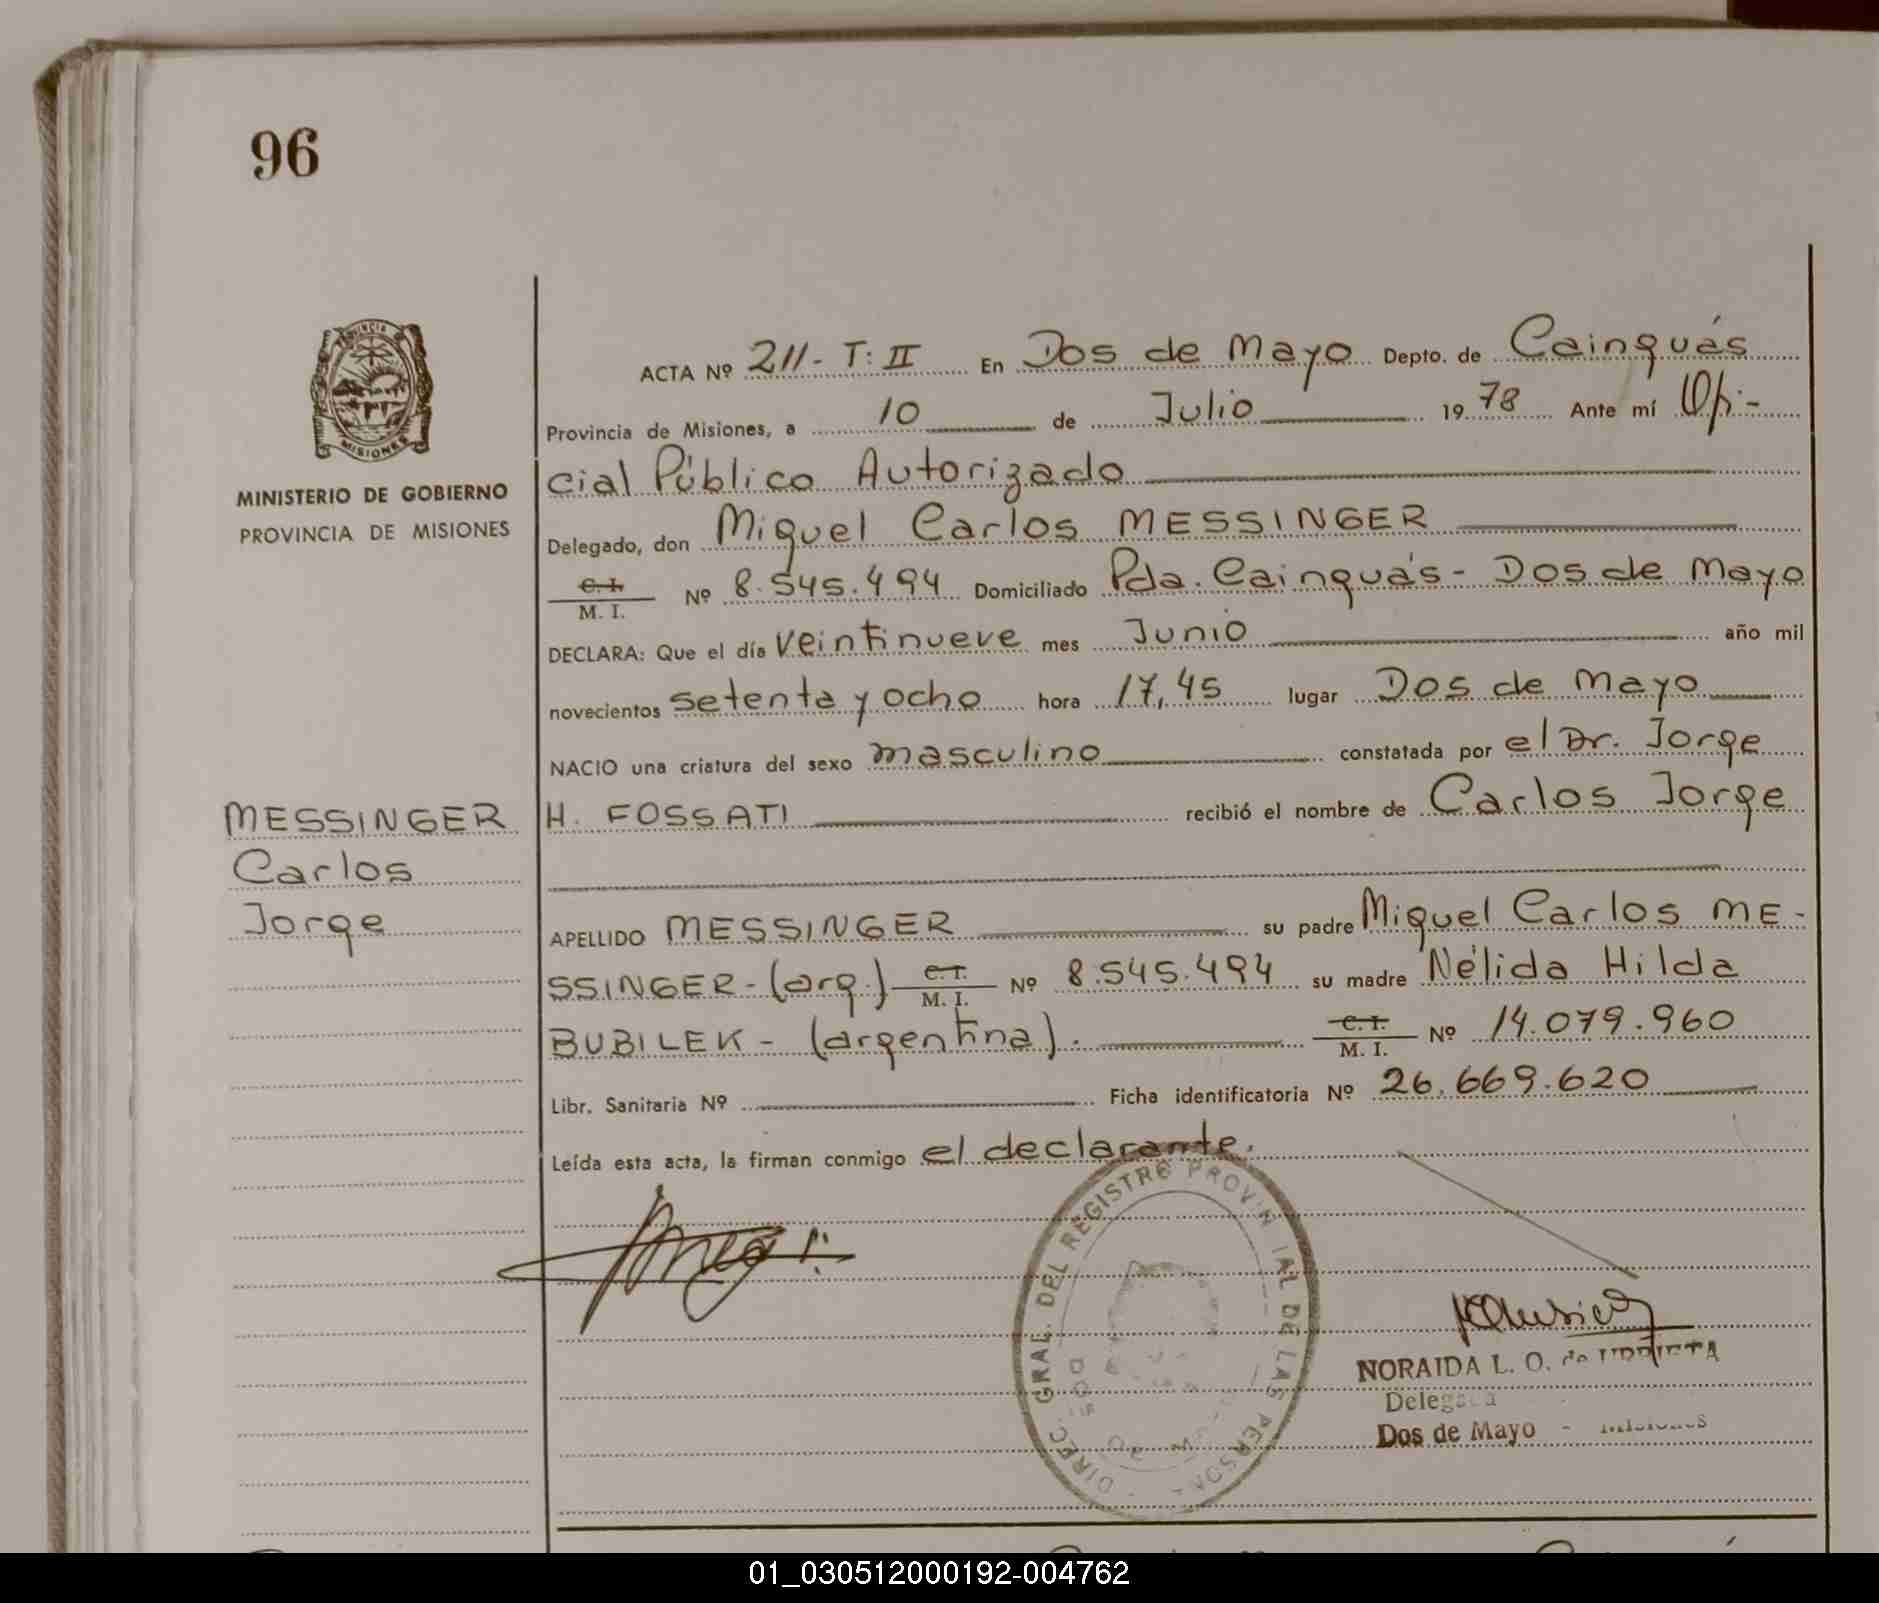 96
PROVINCIA
MISIONES
MINISTERIO DE GOBIERNO
PROVINCIA DE MISIONES
ACTA Nº 211- T: II En Dos de Mayo Depto. de Cainguás
Provincia de Misiones, a 10 de Julio 1978 Ante mí Ofi-
cial Público Autorizado
Delegado, don Miguel Carlos MESSINGER
C. I.
M. I. Nº 8.545.494 Domiciliado Pda. Cainguás - Dos de Mayo
DECLARA: Que el día veintinueve mes Junio año mil
novecientos setenta y ocho hora 17,45 lugar Dos de Mayo
NACIO una criatura del sexo masculino constatada por el Dr. Jorge
H. FOSSATI recibió el nombre de Carlos Jorge
MESSINGER
Carlos
Jorge
APELLIDO MESSINGER su padre Miguel Carlos ME-
SSINGER - (arg.) C. I. M. I. Nº 8.545.494 su madre Nélida Hilda
BUBILEK - (argentina). C. I. M. I. Nº 14.079.960
Libr. Sanitaria Nº Ficha identificatoria Nº 26.669.620
Leída esta acta, la firman conmigo el declarante.
DIREC. GRAL. DEL REGISTRO PROVINCIAL DE LAS PERSONAS
NORAIDA L. O. de URRIETA
Delegada
Dos de Mayo - Misiones
01_030512000192-004762